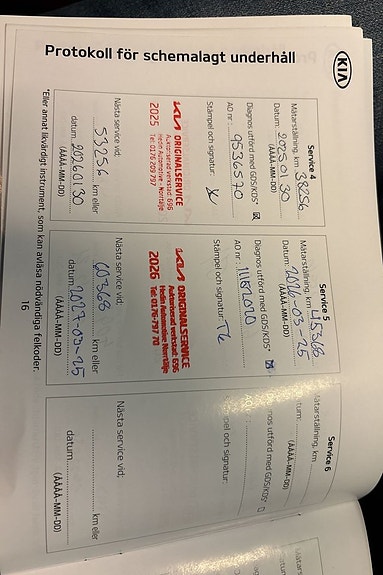 KIA
Protokoll för schemalagt underhåll
Service 4
Mätarställning, km 38256
datum: 2025 01 30
(ÅÅÅÅ-MM-DD)
Diagnos utförd med GDS/KDS*
AO nr: 9536570
Stämpel och signatur:
KIA ORIGINALSERVICE
Auktoriserad verkstad 696
Hedin Automotive - Norrtälje
Tel: 0176-209 797
2025
Nästa service vid:
53256 km eller
datum: 20260130
(ÅÅÅÅ-MM-DD)
Service 5
Mätarställning, km 45368
datum: 2026-03-25
(ÅÅÅÅ-MM-DD)
Diagnos utförd med GDS/KDS*
AO nr:
Stämpel och signatur:
KIA ORIGINALSERVICE
Auktoriserad verkstad 696
Hedin Automotive Norrtälje
2026
Nästa service vid:
60368 km eller
datum: 2027-03-25
(ÅÅÅÅ-MM-DD)
Service 6
Mätarställning, km
datum:
(ÅÅÅÅ-MM-DD)
utförd med GDS/KDS*
Stämpel och signatur:
Nästa service vid:
km eller
datum
(ÅÅÅÅ-MM-DD)
*Eller annat likvärdigt instrument, som kan avläsa nödvändiga felkoder.
16